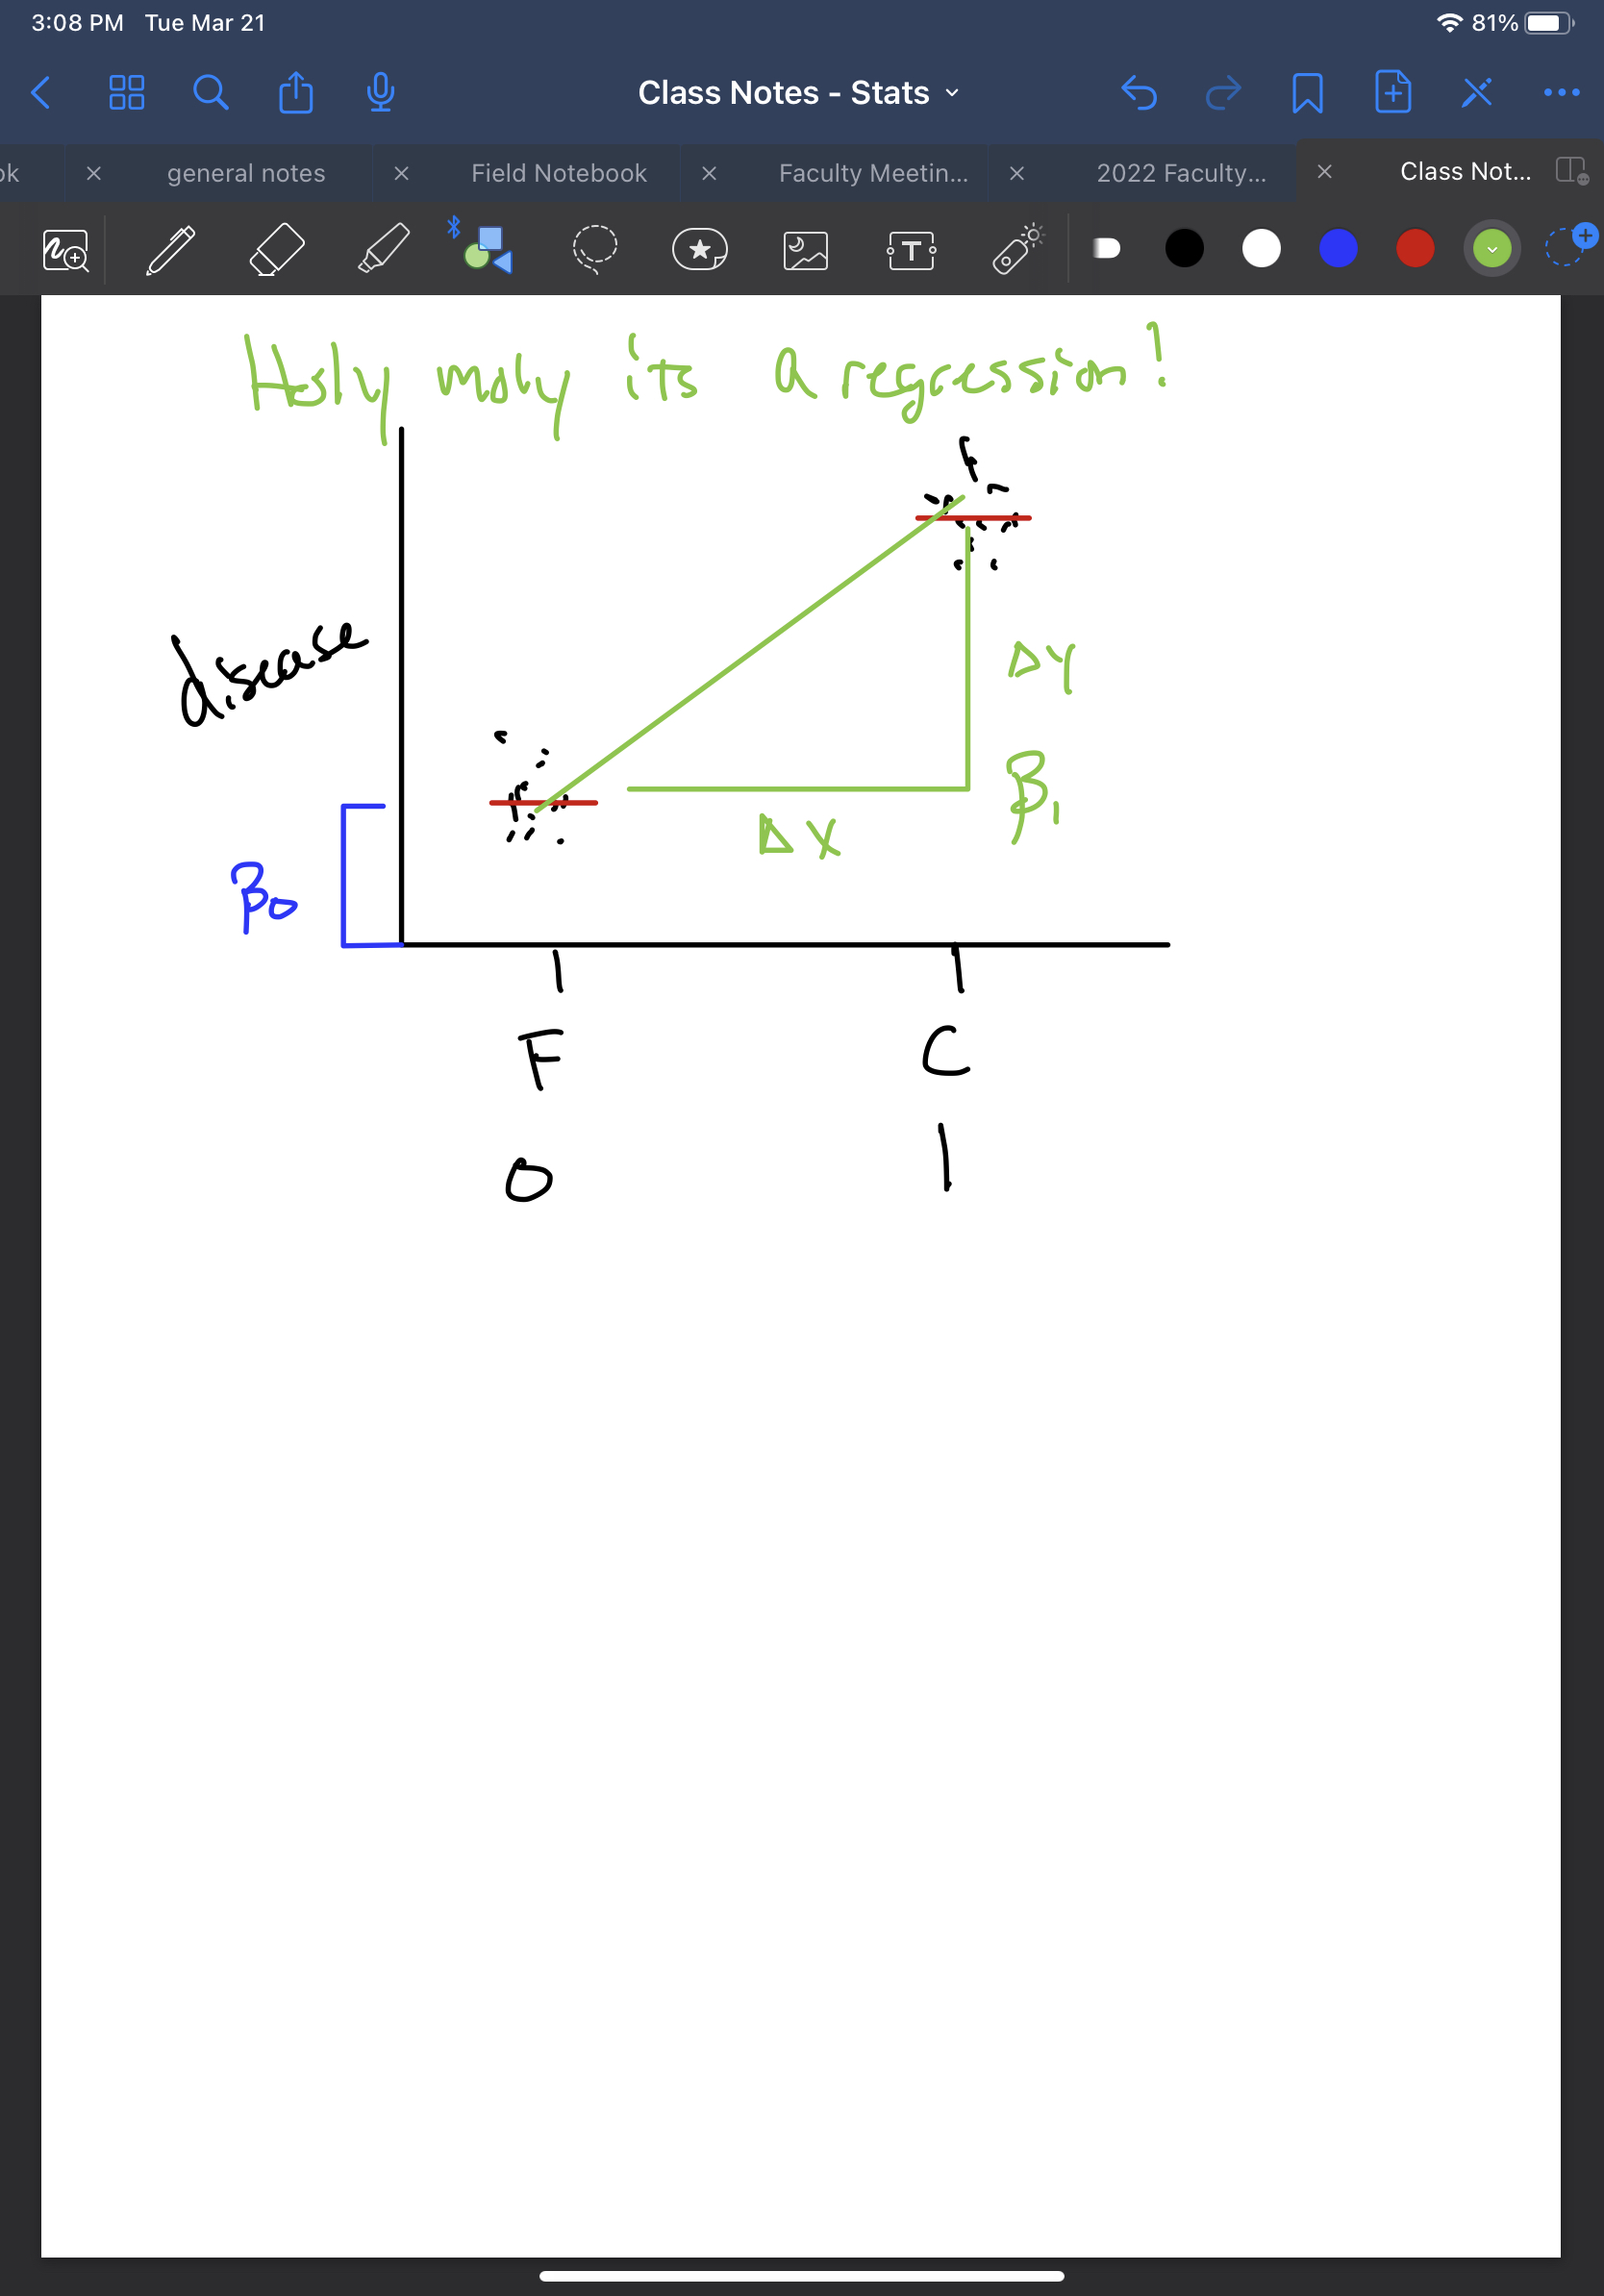 3:08 PM Tue Mar 21 81%
Class Notes - Stats
ok general notes Field Notebook Faculty Meetin... 2022 Faculty... Class Not...
T
Holy moly its a regression!
disease
ΔY
β₁
ΔX
β₀
F C
0 1